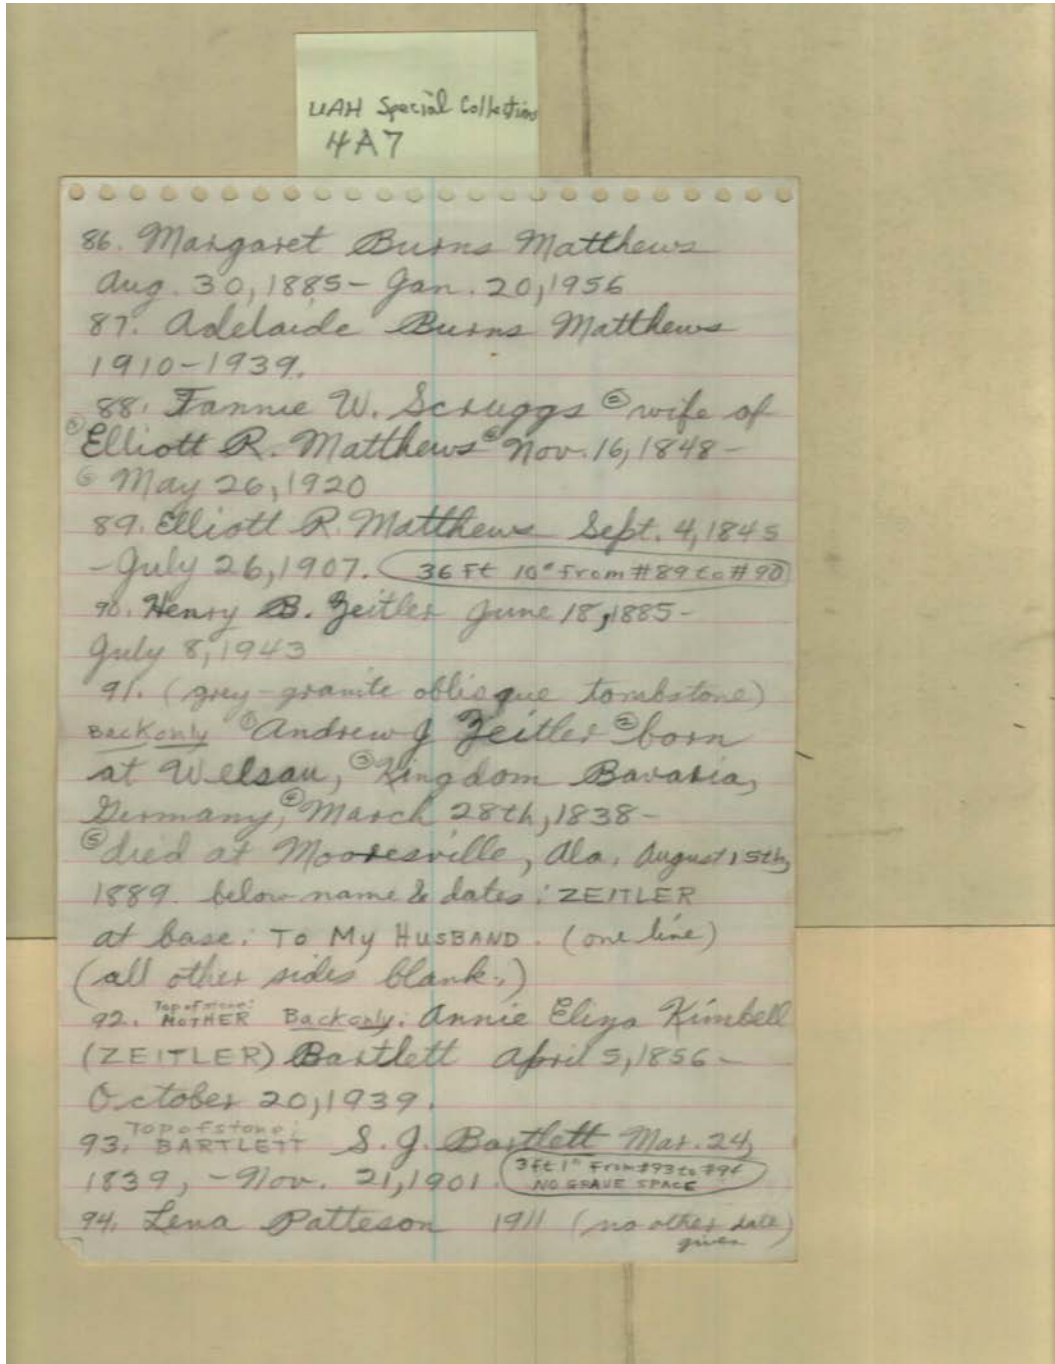 UAH Special Collection
4A7
86. Margaret Burns Matthews
Aug. 30, 1885 - Jan. 20, 1956
87. Adelaide Burns Matthews
1910-1939.
88. Fannie W. Scruggs ② wife of
③ Elliott R. Matthews ④ Nov. 16, 1848 -
⑤ May 26, 1920
89. Elliott R. Matthews Sept. 4, 1845
- July 26, 1907. 36 Ft 10" From #89 to #90
90. Henry B. Zeitler June 18, 1885 -
July 8, 1943
91. (grey-granite oblisque tombstone)
Back only ① Andrew J Zeitler ② born
at Welsau, ③ Kingdom Bavaria,
Germany, ④ March 28th, 1838 -
⑤ died at Mooresville, Ala. August 15th,
1889. below name & dates: ZEITLER
at base: TO MY HUSBAND. (one line)
(all other sides blank.)
92. Top of stone: MOTHER Back only: Annie Eliza Kimbell
(ZEITLER) Bartlett April 5, 1856 -
October 20, 1939.
93. Top of stone: BARTLETT S. J. Bartlett Mar. 24,
1839, - Nov. 21, 1901. 3ft 1" From #93 to #94
NO GRAVE SPACE
94. Lena Patteson 1911 (no other date)
given